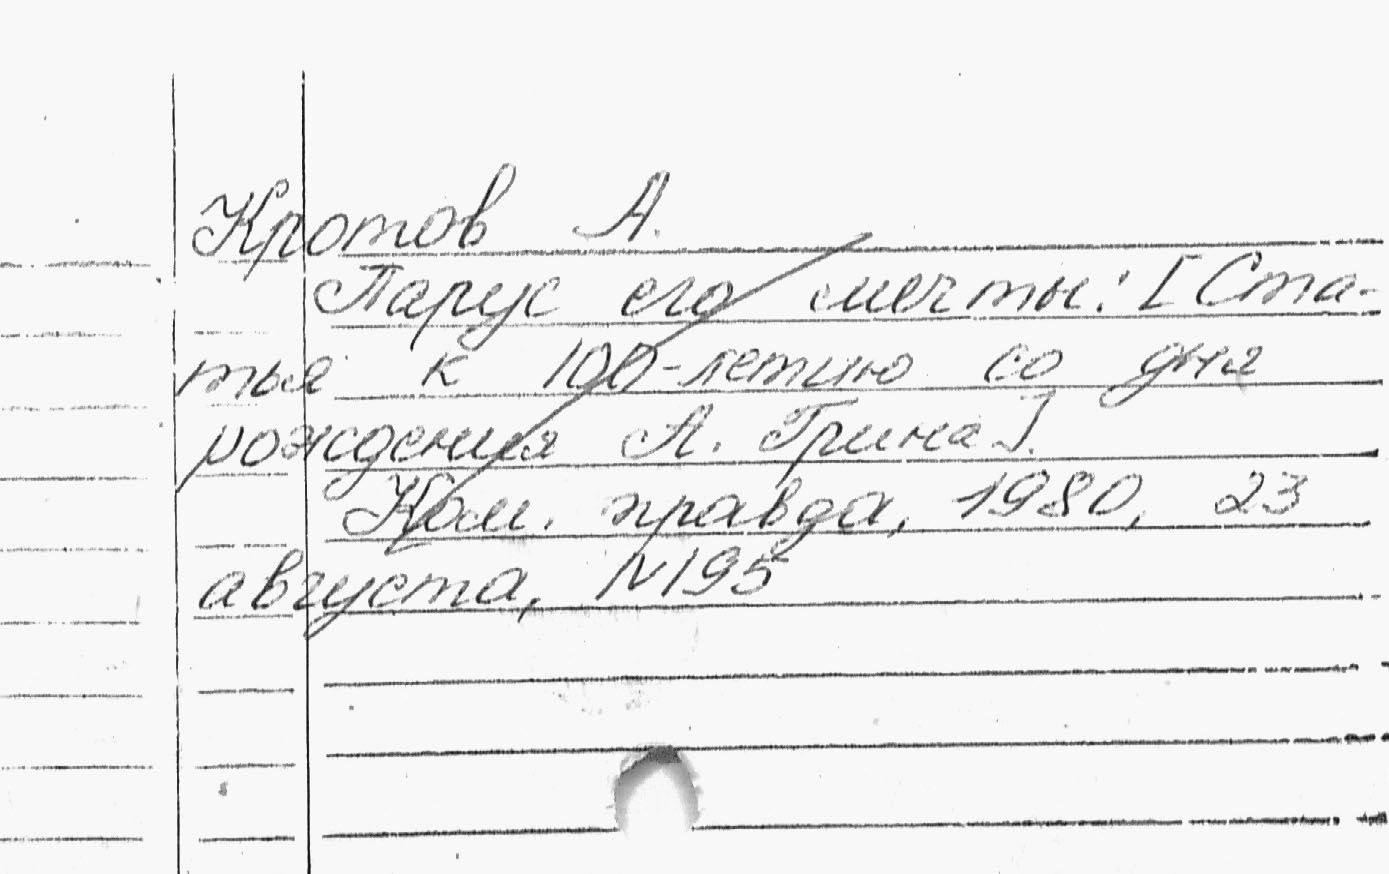 Кротов А.
Парус его мечты: [Ста-
тья к 100-летию со дня
рождения А. Грина].
Ком. правда, 1980, 23
августа, N195